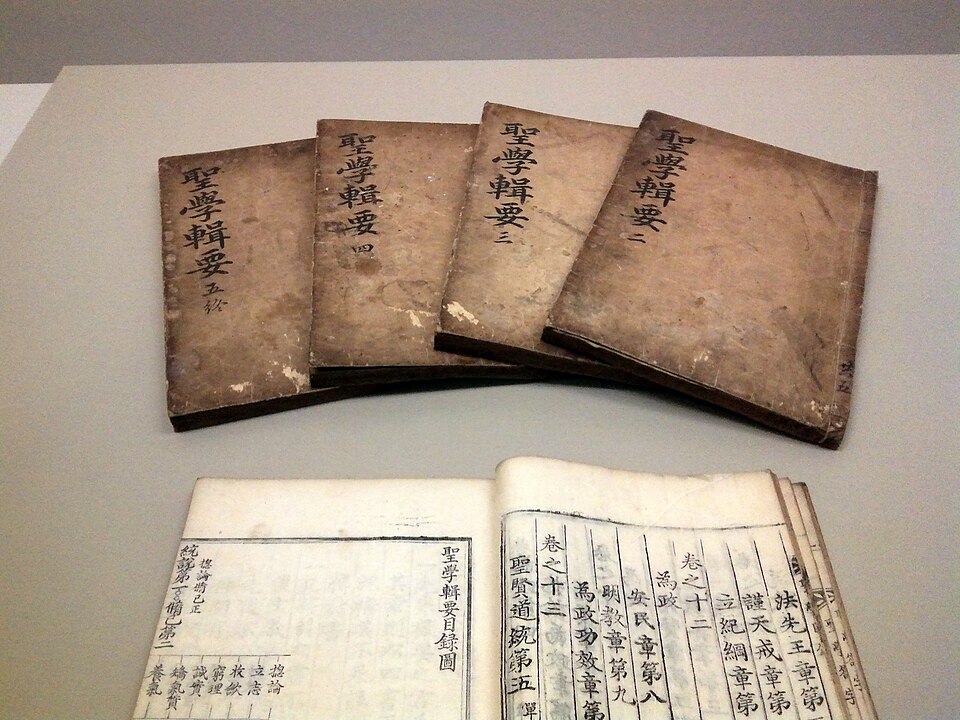 聖學輯要 二
聖學輯要 三
聖學輯要 四
聖學輯要 五 終
法先王章第
謹天戒章第
立紀綱章第
卷之十二
為政
安民章第八
明教章第九
為政功效章第
卷之十三
聖賢道統第五 單
聖學輯要目錄圖
統說第一
修己第二
摠論
立志
收斂
窮理
誠實
矯氣質
養氣